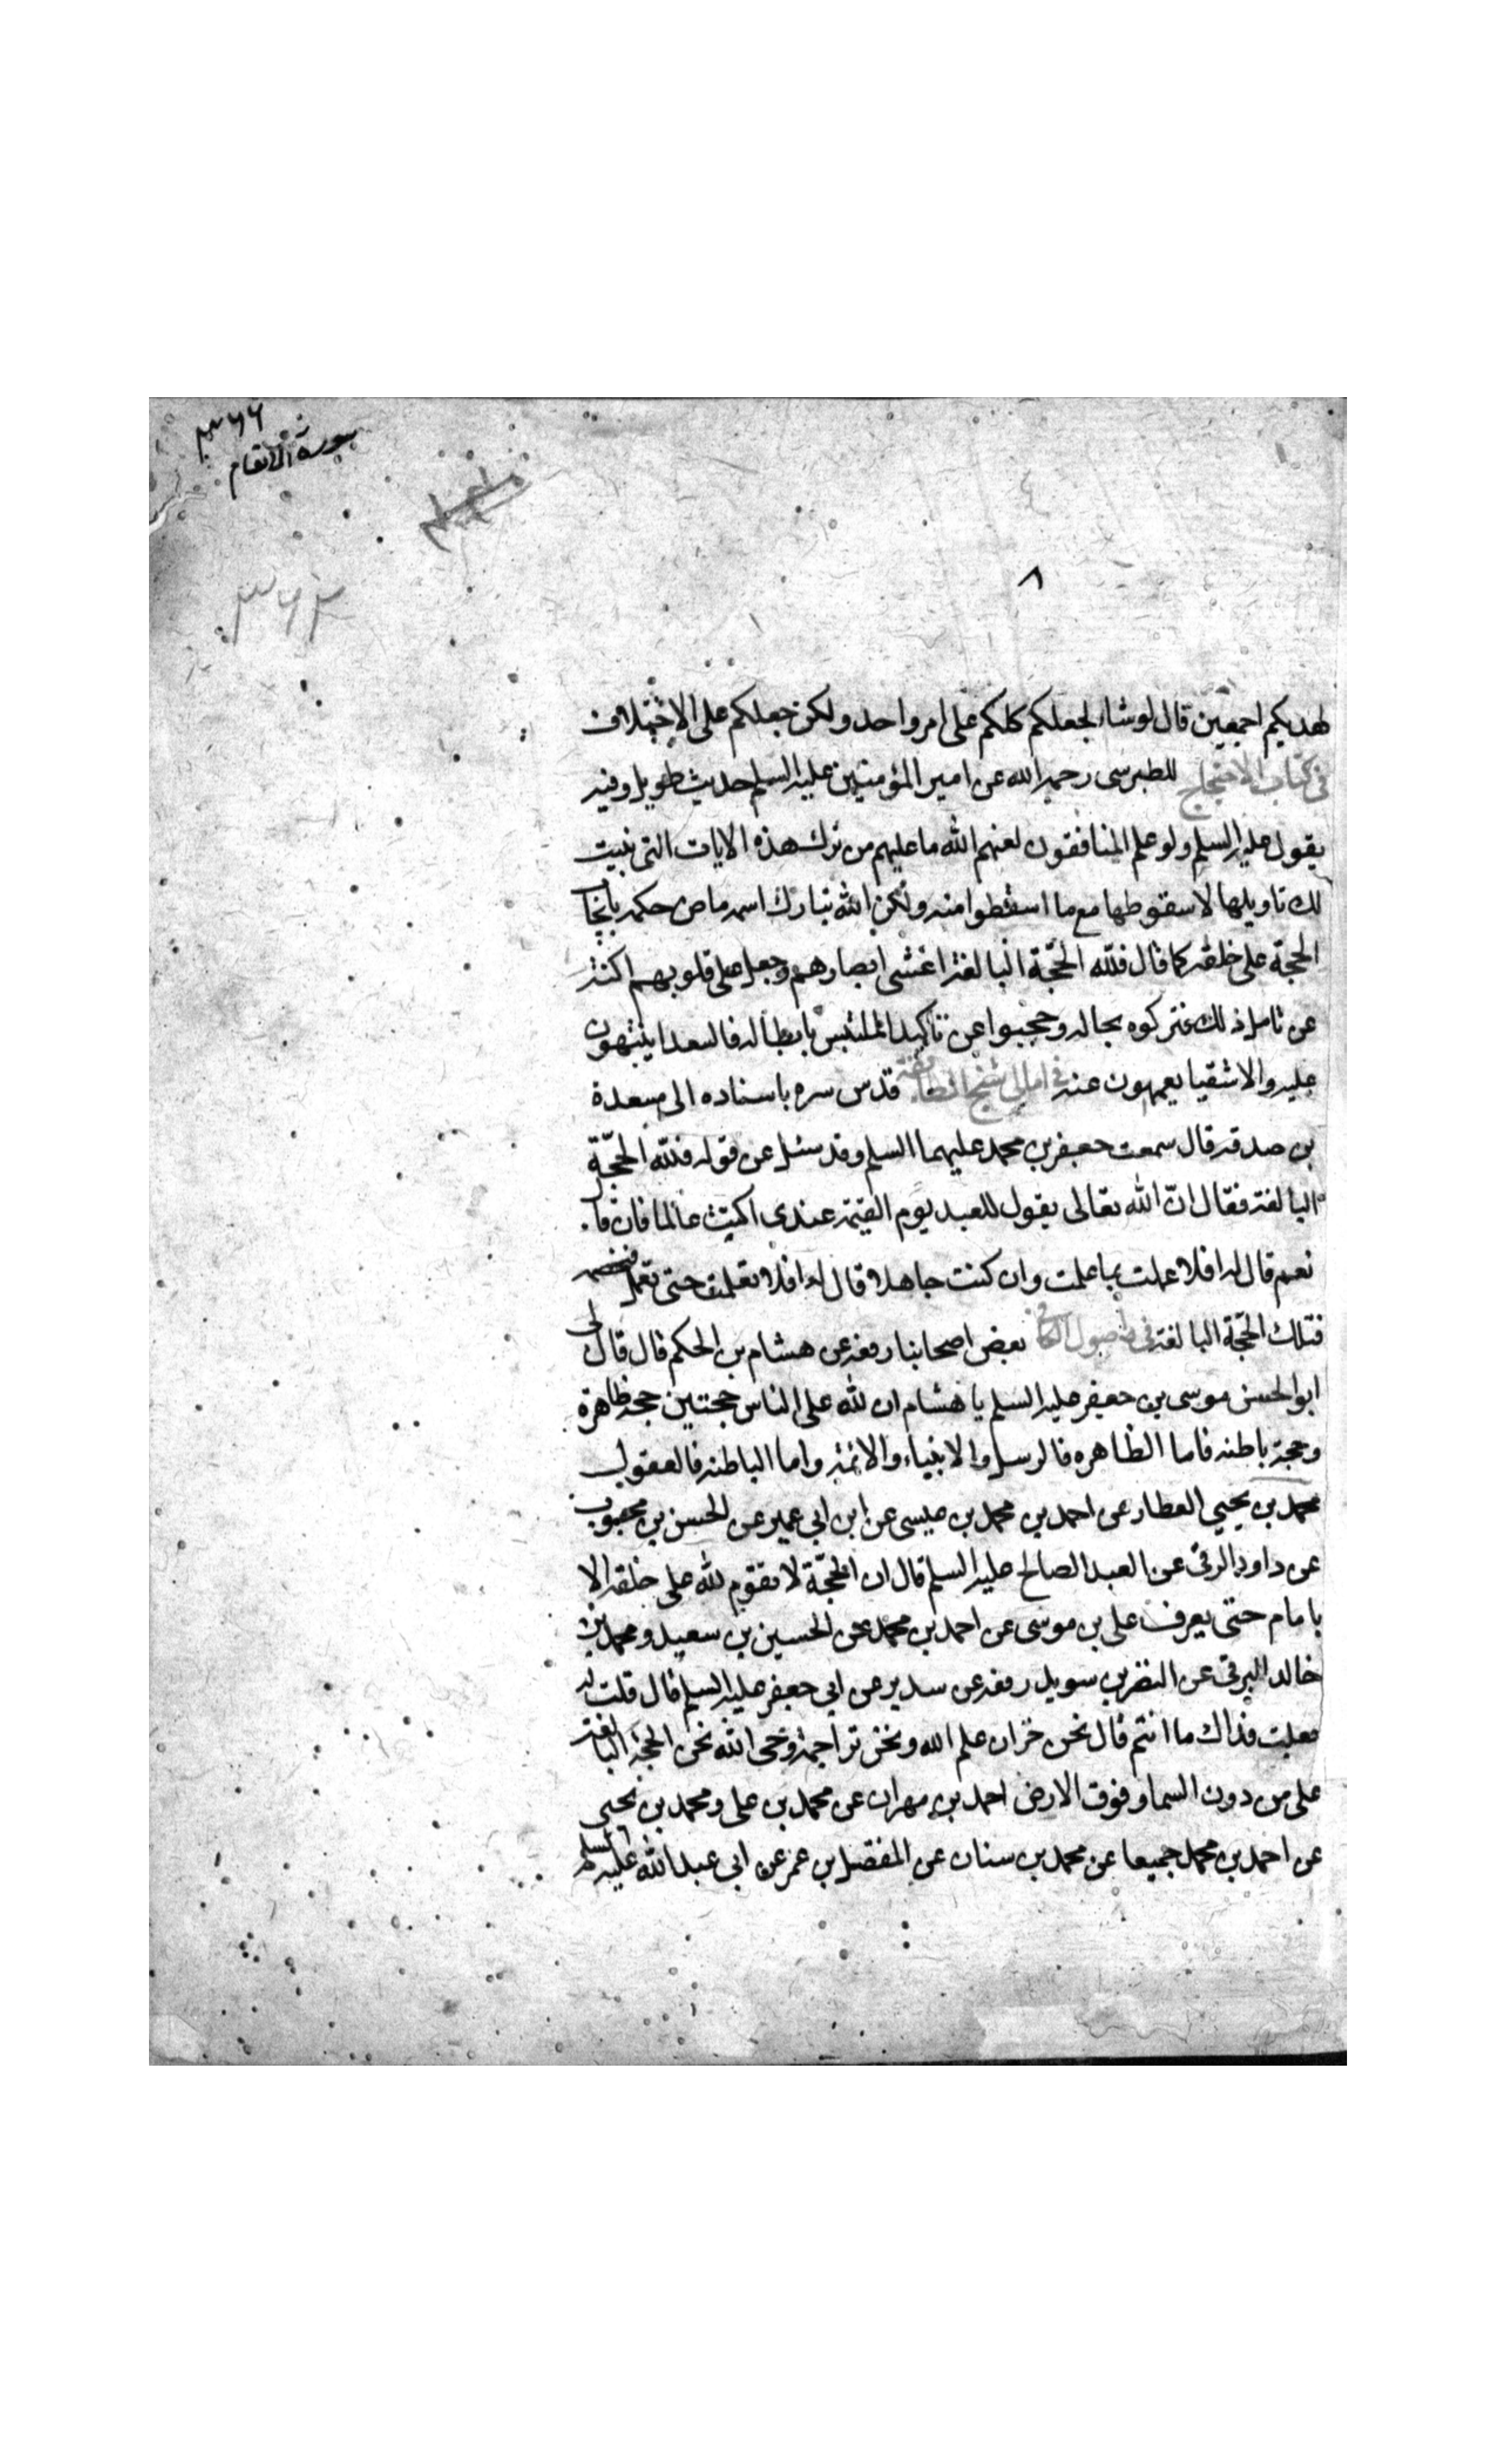 ٣٦٦
سورة الانعام
٣٦٣
٨
لهديكم اجمعين قال لو شاء لجعلكم كلكم على امر واحد ولكن جعلكم على الاختلاف
فى كتاب الاحتجاج للطبرسى رحمه الله عن امير المؤمنين عليه السلم حديث طويل وفيه
يقول عليه السلم ولو علم المنافقون لعنهم الله ما عليهم من ترك هذه الايات التى بنيت
لك تاويلها لاسقوطها مع ما اسقطوا منه ولكن الله تبارك اسمه ماض حكمه بايجا
الحجة على خلقه كما قال فلله الحجّة البالغة اغشى ابصارهم وجعل على قلوبهم اكنة
عن تامل ذلك فتركوه بحاله وحجبوا عن تاكيد الملتبس بابطاله فالسعدا ينتبهون
عليه والاشقيا يعمهون عنه فى امالى شيخ الطائفة قدس سره باسناده الى مسعدة
بن صدقه قال سمعت جعفر بن محمد عليهما السلم وقد سئل عن قوله فلله الحجّة
البالغة فقال انّ الله تعالى يقول للعبد يوم القيمة عبدى اكنت عالما فان قا
نعم قال له افلا عملت بما علمت وان كنت جاهلا قال له افلا تعلمت حتى تعمل فيخصمه
فتلك الحجّة البالغة فى اصول الكافى بعض اصحابنا رفعه عن هشام بن الحكم قال قال لى
ابو الحسن موسى بن جعفر عليه السلم يا هشام ان لله على الناس حجتين حجة ظاهرة
وحجة باطنه فاما الظاهره فالرسل والانبياء والائمة واما الباطنه فالعقول
محمد بن يحيى العطار عن احمد بن محمد بن عيسى عن ابن ابى عمير عن الحسن بن محبوب
عن داود الرقى عن العبد الصالح عليه السلم قال ان الحجّة لا تقوم لله على خلقه الا
بامام حتى يعرف على بن موسى عن احمد بن محمد عن الحسين بن سعيد ومحمد بن
خالد البرقى عن النضر بن سويد رفعه عن سدير عن ابى جعفر عليه السلم قال قلت له
جعلت فداك ما انتم قال نحن خزان علم الله ونحن تراجمة وحى الله نحن الحجة البالغة
على من دون السما وفوق الارض احمد بن مهران عن محمد بن على ومحمد بن يحيى
عن احمد بن محمد جميعا عن محمد بن سنان عن المفضل بن عمر عن ابى عبد الله عليه السلم